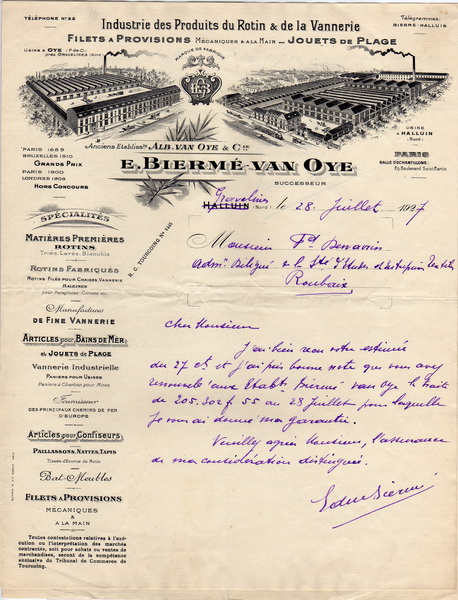 TÉLÉPHONE Nº 22
Industrie des Produits du Rotin & de la Vannerie
Télégrammes:
BIERMÉ-HALLUIN
FILETS A PROVISIONS MÉCANIQUES & A LA MAIN — JOUETS DE PLAGE
USINE A OYE (P.de C.)
près GRAVELINES (Nord)
MARQUE DE FABRIQUE
USINE
A HALLUIN
(Nord)
Anciens Etablissts ALB. VAN OYE & Cie
E. BIERMÉ-VAN OYE
SUCCESSEUR
PARIS 1889
BRUXELLES 1910
GRANDS PRIX
PARIS 1900
LONDRES 1908
HORS CONCOURS
PARIS
SALLE D'ÉCHANTILLONS
39, Boulevard Saint-Martin
Gravelines
HALLUIN (Nord) le 28 Juillet 1927
R. C. TOURCOING Nº
Monsieur Fd
Admr Délégué
Roubaix
SPÉCIALITÉS
MATIÈRES PREMIÈRES
ROTINS
Triés, Lavés, Blanchis
ROTINS FABRIQUÉS
ROTINS FILÉS POUR CHAISES, VANNERIE
BALEINES
pour Parapluies, Corsets, etc.
Manufacture
DE FINE VANNERIE
ARTICLES pour BAINS DE MER
et JOUETS DE PLAGE
Vannerie Industrielle
PANIERS POUR USINES
Paniers à Charbon pour Mines
Fournisseur
DES PRINCIPAUX CHEMINS DE FER
D'EUROPE
Articles pour Confiseurs
PAILLASSONS, NATTES, TAPIS
Tissés d'Écorce de Rotin
Bat-Meubles
FILETS A PROVISIONS
MÉCANIQUES
&
A LA MAIN
Toutes contestations relatives à l'exé-
cution ou l'interprétation des marchés
contractés, soit pour achats ou ventes de
marchandises, seront de la compétence
exclusive du Tribunal de Commerce de
Tourcoing.
Cher Monsieur
J'ai bien reçu votre estimée
du 27 ct et j'ai pris bonne note que vous avez
renouvelé aux Etabts Biermé van Oye la traite
de 205.302 f 55 au 28 Juillet pour laquelle
je vous ai donné ma garantie.
Veuillez agréer Monsieur, l'assurance
de ma considération distinguée.